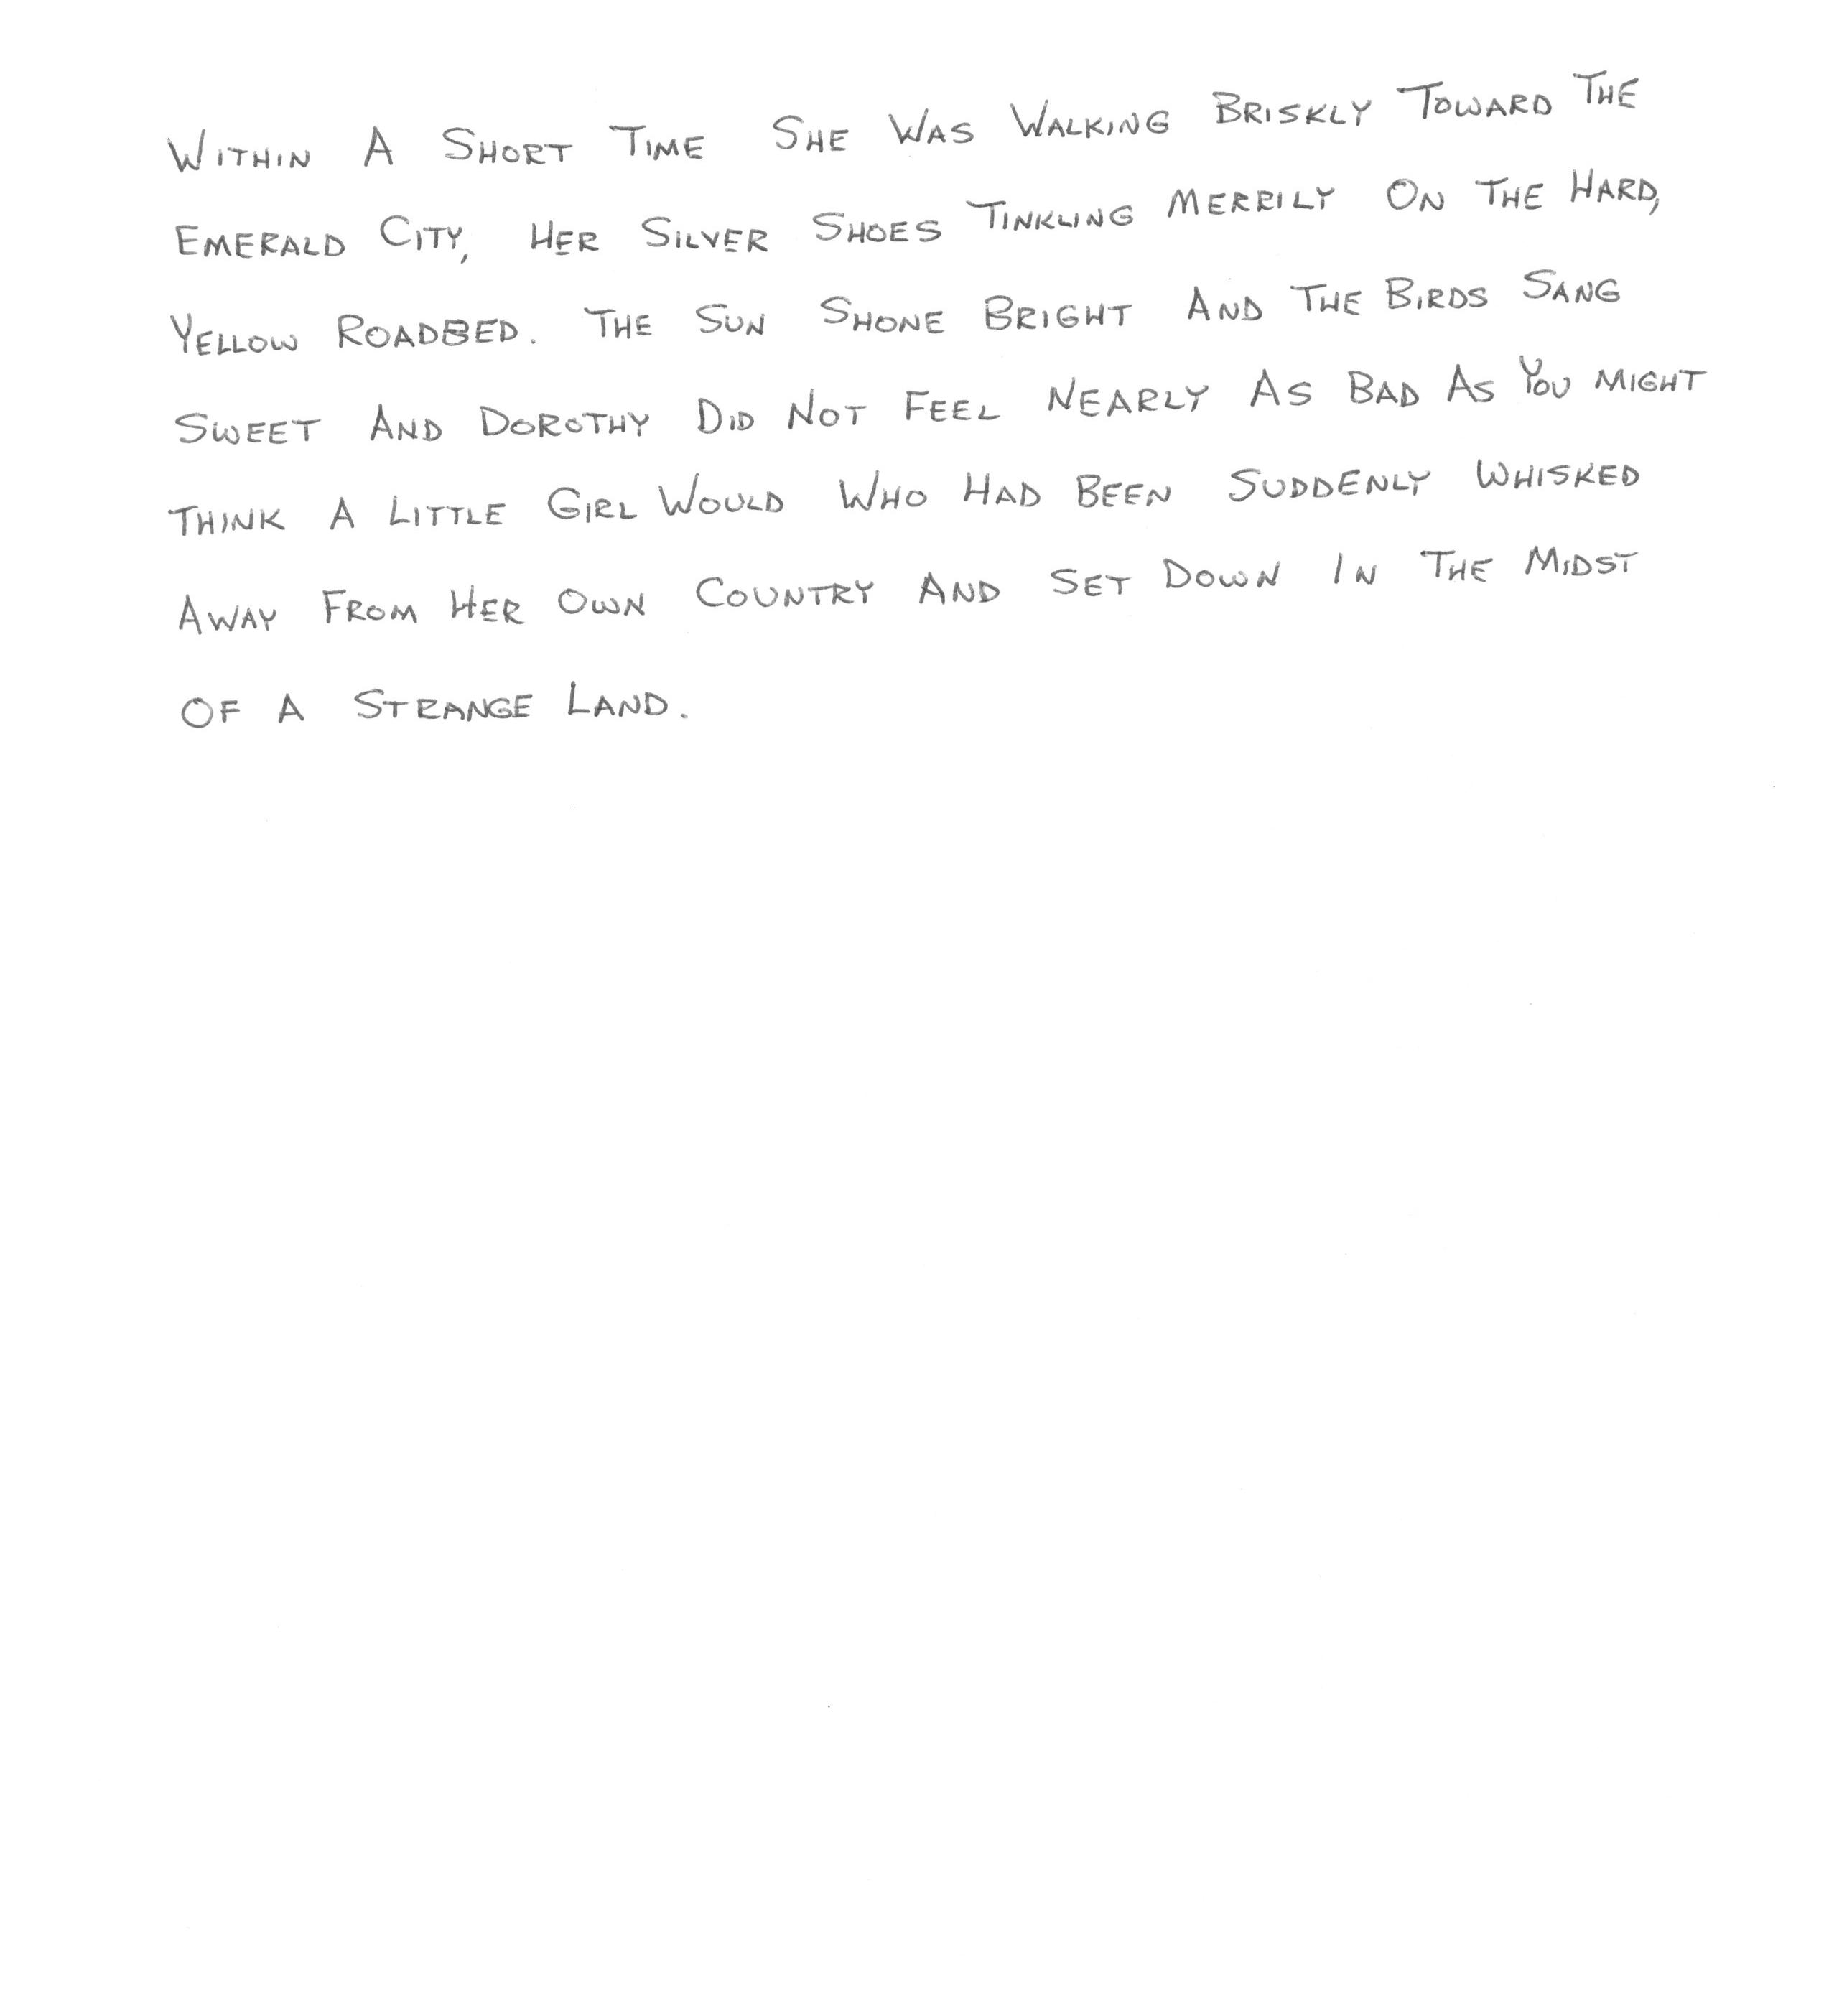 WITHIN A SHORT TIME SHE WAS WALKING BRISKLY TOWARD THE
EMERALD CITY, HER SILVER SHOES TINKLING MERRILY ON THE HARD,
YELLOW ROADBED. THE SUN SHONE BRIGHT AND THE BIRDS SANG
SWEET AND DOROTHY DID NOT FEEL NEARLY AS BAD AS YOU MIGHT
THINK A LITTLE GIRL WOULD WHO HAD BEEN SUDDENLY WHISKED
AWAY FROM HER OWN COUNTRY AND SET DOWN IN THE MIDST
OF A STRANGE LAND.